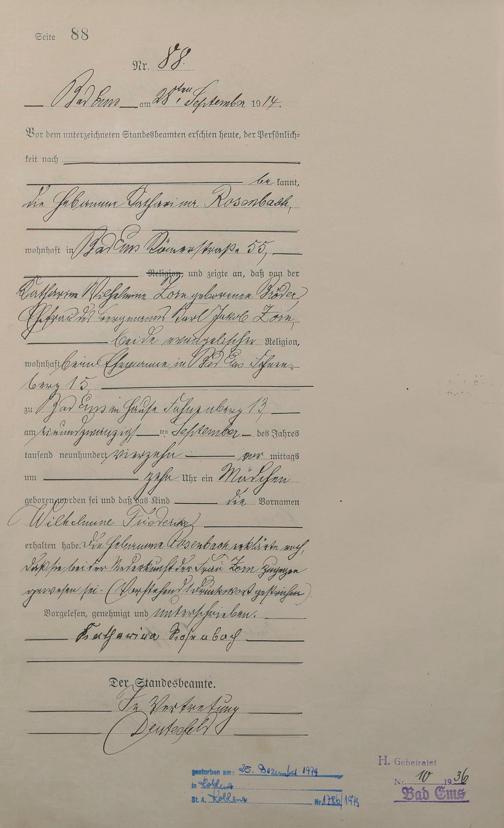 Seite 88
Nr. 88.
Bad Ems am 28ten September 1914.
Vor dem unterzeichneten Standesbeamten erschien heute, der Persönlich-
keit nach
be kannt,
die Hebamme Katharina Rosenbach,
wohnhaft in Bad Ems Römerstraße 55,
Religion, und zeigte an, daß von der
Katharine Wilhelmine Zorn geborenen
Ehefrau des Karl Jakob Zorn,
beide evangelischer Religion,
wohnhaft beim Ehemanne in Bad Ems
berg 13
zu Bad Ems im Hause 13
am September des Jahres
tausend neunhundert vierzehn vor mittags
um zehn Uhr ein Mädchen
geboren worden sei und daß das Kind die Vornamen
Wilhelmine
erhalten habe. Die Hebamme Rosenbach erklärte noch,
daß sie bei der Niederkunft der Frau Zorn zugegen
gewesen sei. (Vorstehend 1 Druckwort gestrichen)
Vorgelesen, genehmigt und unterschrieben.
Katharina Rosenbach
Der Standesbeamte.
In Vertretung
gestorben am: 25. Dezember 1974
in Koblenz
St. A. Koblenz Nr.
H. Geheiratet
Nr. 10 1936
Bad Ems